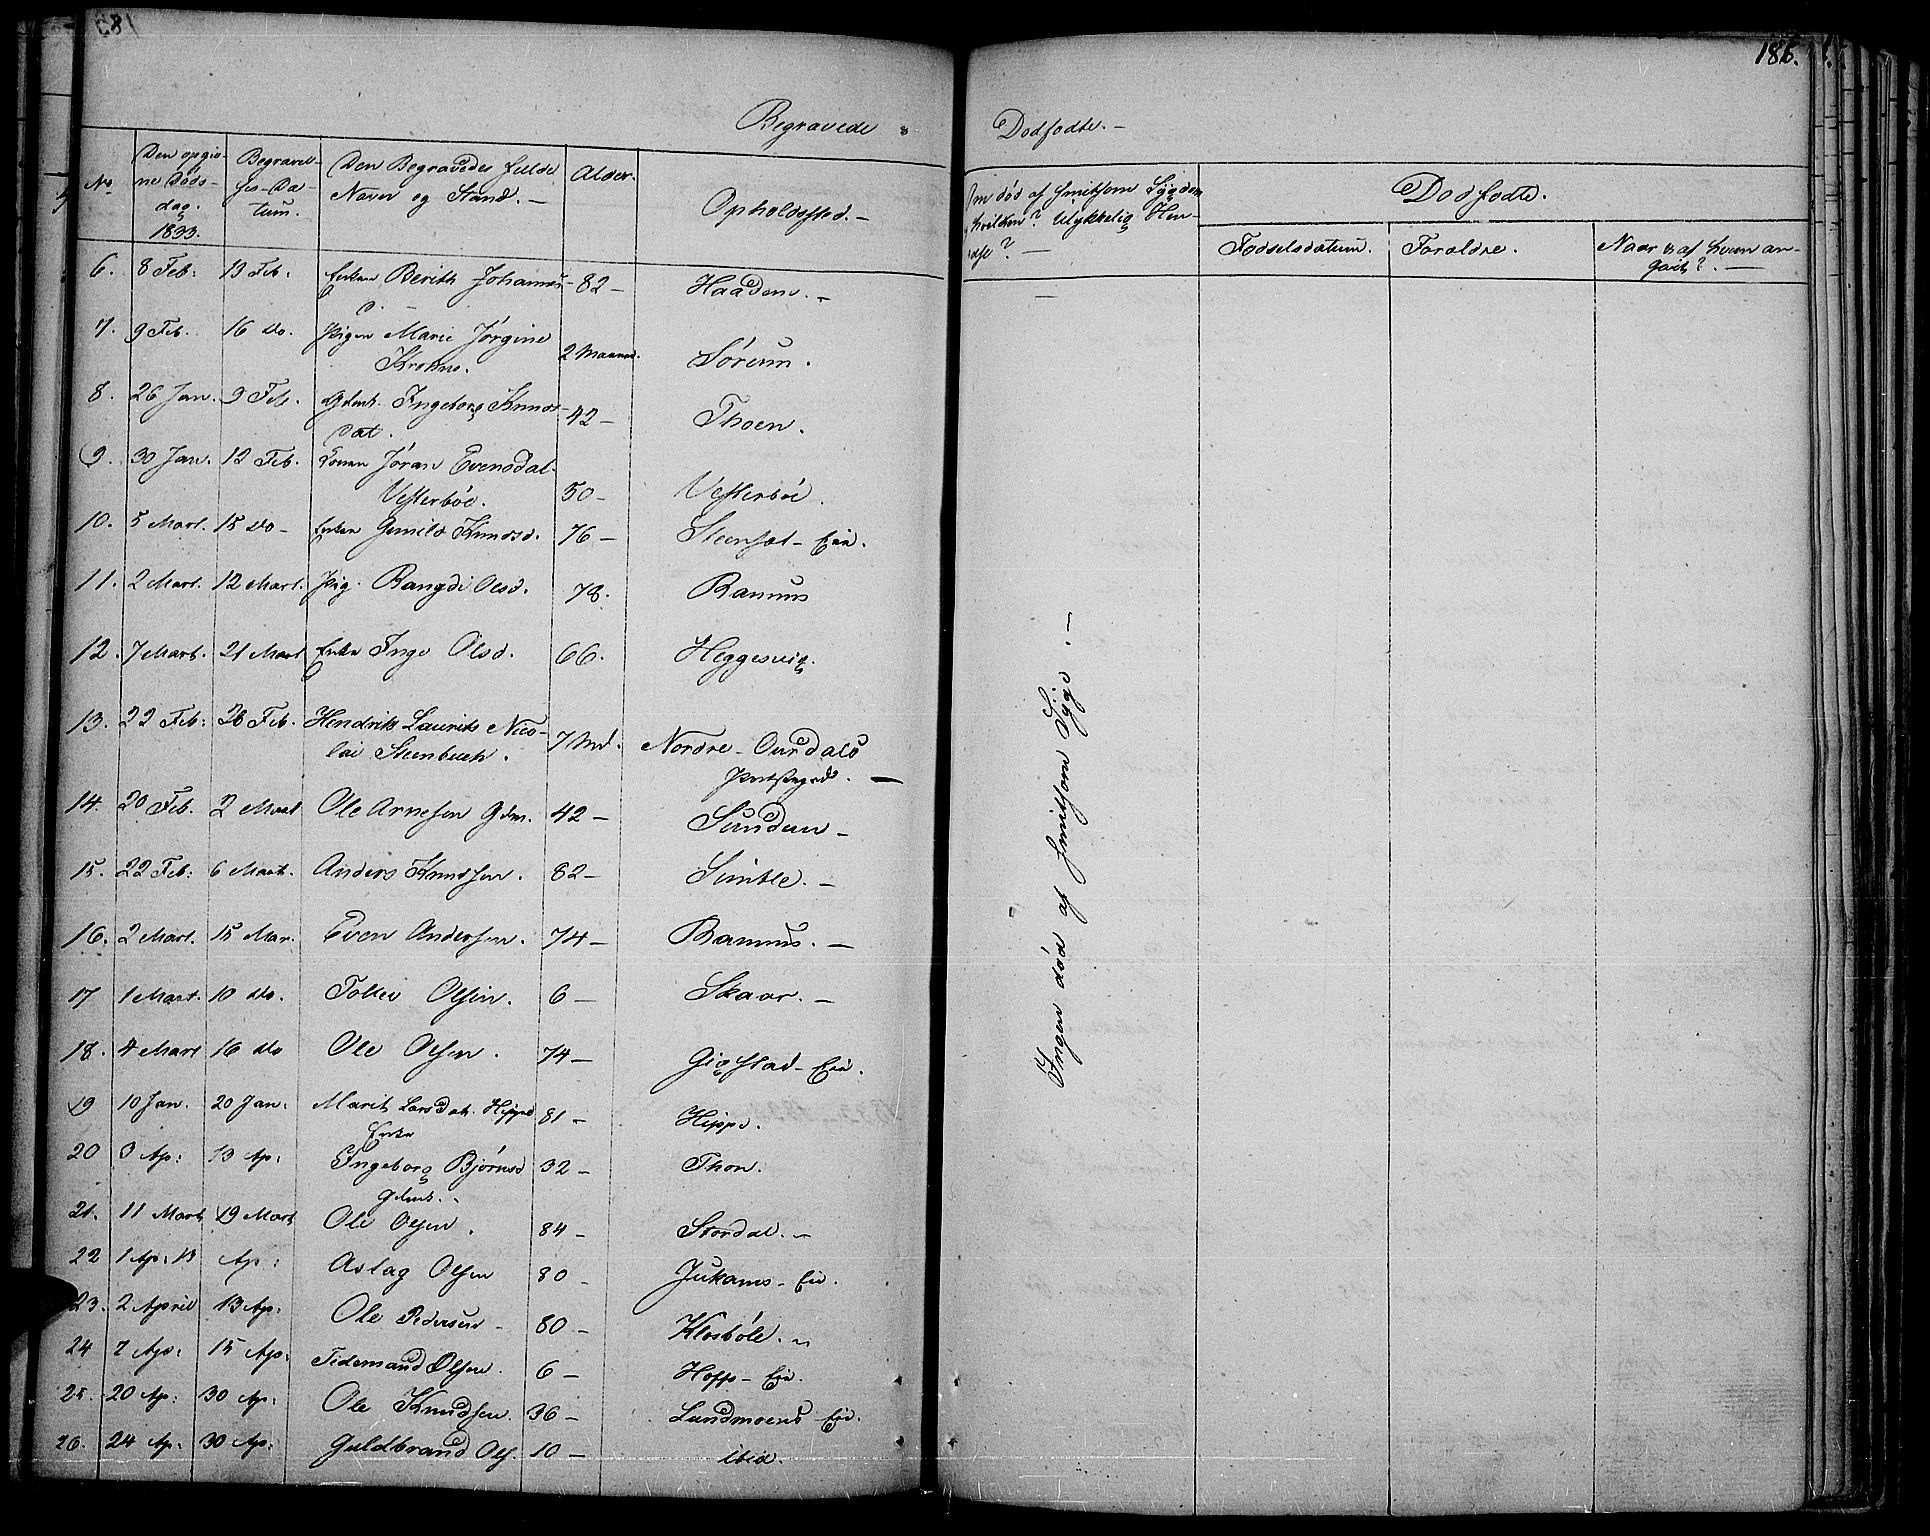 186.
Begravede &
Dødfødte.
No
Den opgivne Døds-dag. 1833.
Begravelses-Datum.
Den Begravedes fulde Navn og Stand.
Alder.
Opholdssted.
Om død af smitsom Sygdom hvilken? Ulykkelig Hændelse?
Dødfødte.
Fødselsdatum.
Forældre.
Naar & af hvem angivet?
6. 8 Feb: 13 Feb: Enken Berith Johannesd. 82 Haadem.
7. 9 Feb. 16 do. Pigen Marie Jørgine Krohne. 2 Maaned. Sørum.
8. 26 Jan. 9 Feb. Gdmk. Ingeborg Knudsdat. 42 Thoen.
9. 30 Jan. 12 Feb. Konen Jøran Evensdat. Vesterbøe. 50 Vesterbøe.
10. 5 Mart. 15 do Enken Gunild Knudsd. 76 Steensæt-Eie.
11. 2 Mart. 12 Mart. Pig. Rangdi Olsd. 78. Ranum
12. 7 Mart. 21 Mart Enke Inge Olsd. 66. Heggesvig.
13. 22 Feb: 26 Feb. Hendrik Laurits Nicolai Steenbuch. 7 Md. Nordre-Ourdals Præstegrd.
14. 20 Feb. 2 Mart Ole Arnesen Gdm. 42 Sundeen
15. 22 Feb: 6 Mart. Anders Knudsen. 82 Simble.
16. 2 Mart. 15 Mar. Even Andersen. 74 Ranum.
17 1 Mart. 10 do. Tollei Olsen. 6 Skaar.
18. 4 Mart 16 do Ole Olsen. 74 Gigstad-Eie.
19 10 Jan. 20 Jan: Marit Larsdat. Hippe Enke 81 Hippe.
20 3 Ap: 13 Ap: Ingeborg Bjørnsd Gdmk. 32 Thon.
21. 11 Mart 19 Mart Ole Olsen. 84 Stordal.
22 1 Ap: 13 Ap: Aslag Olsen 80 Jukams-Eie.
23. 2 April 13 Ap: Ole Pedersen 80 Klosbøle.
24 7 Ap: 15 Ap: Tidemand Olsen. 6 Hoffs-Eie.
25. 20 Ap: 30 Ap: Ole Knudsen. 36 Lundmoens-Eie.
26. 24 Ap: 30 Ap: Guldbrand Ols. 10 ibid.
Ingen død af smitsom Syge.